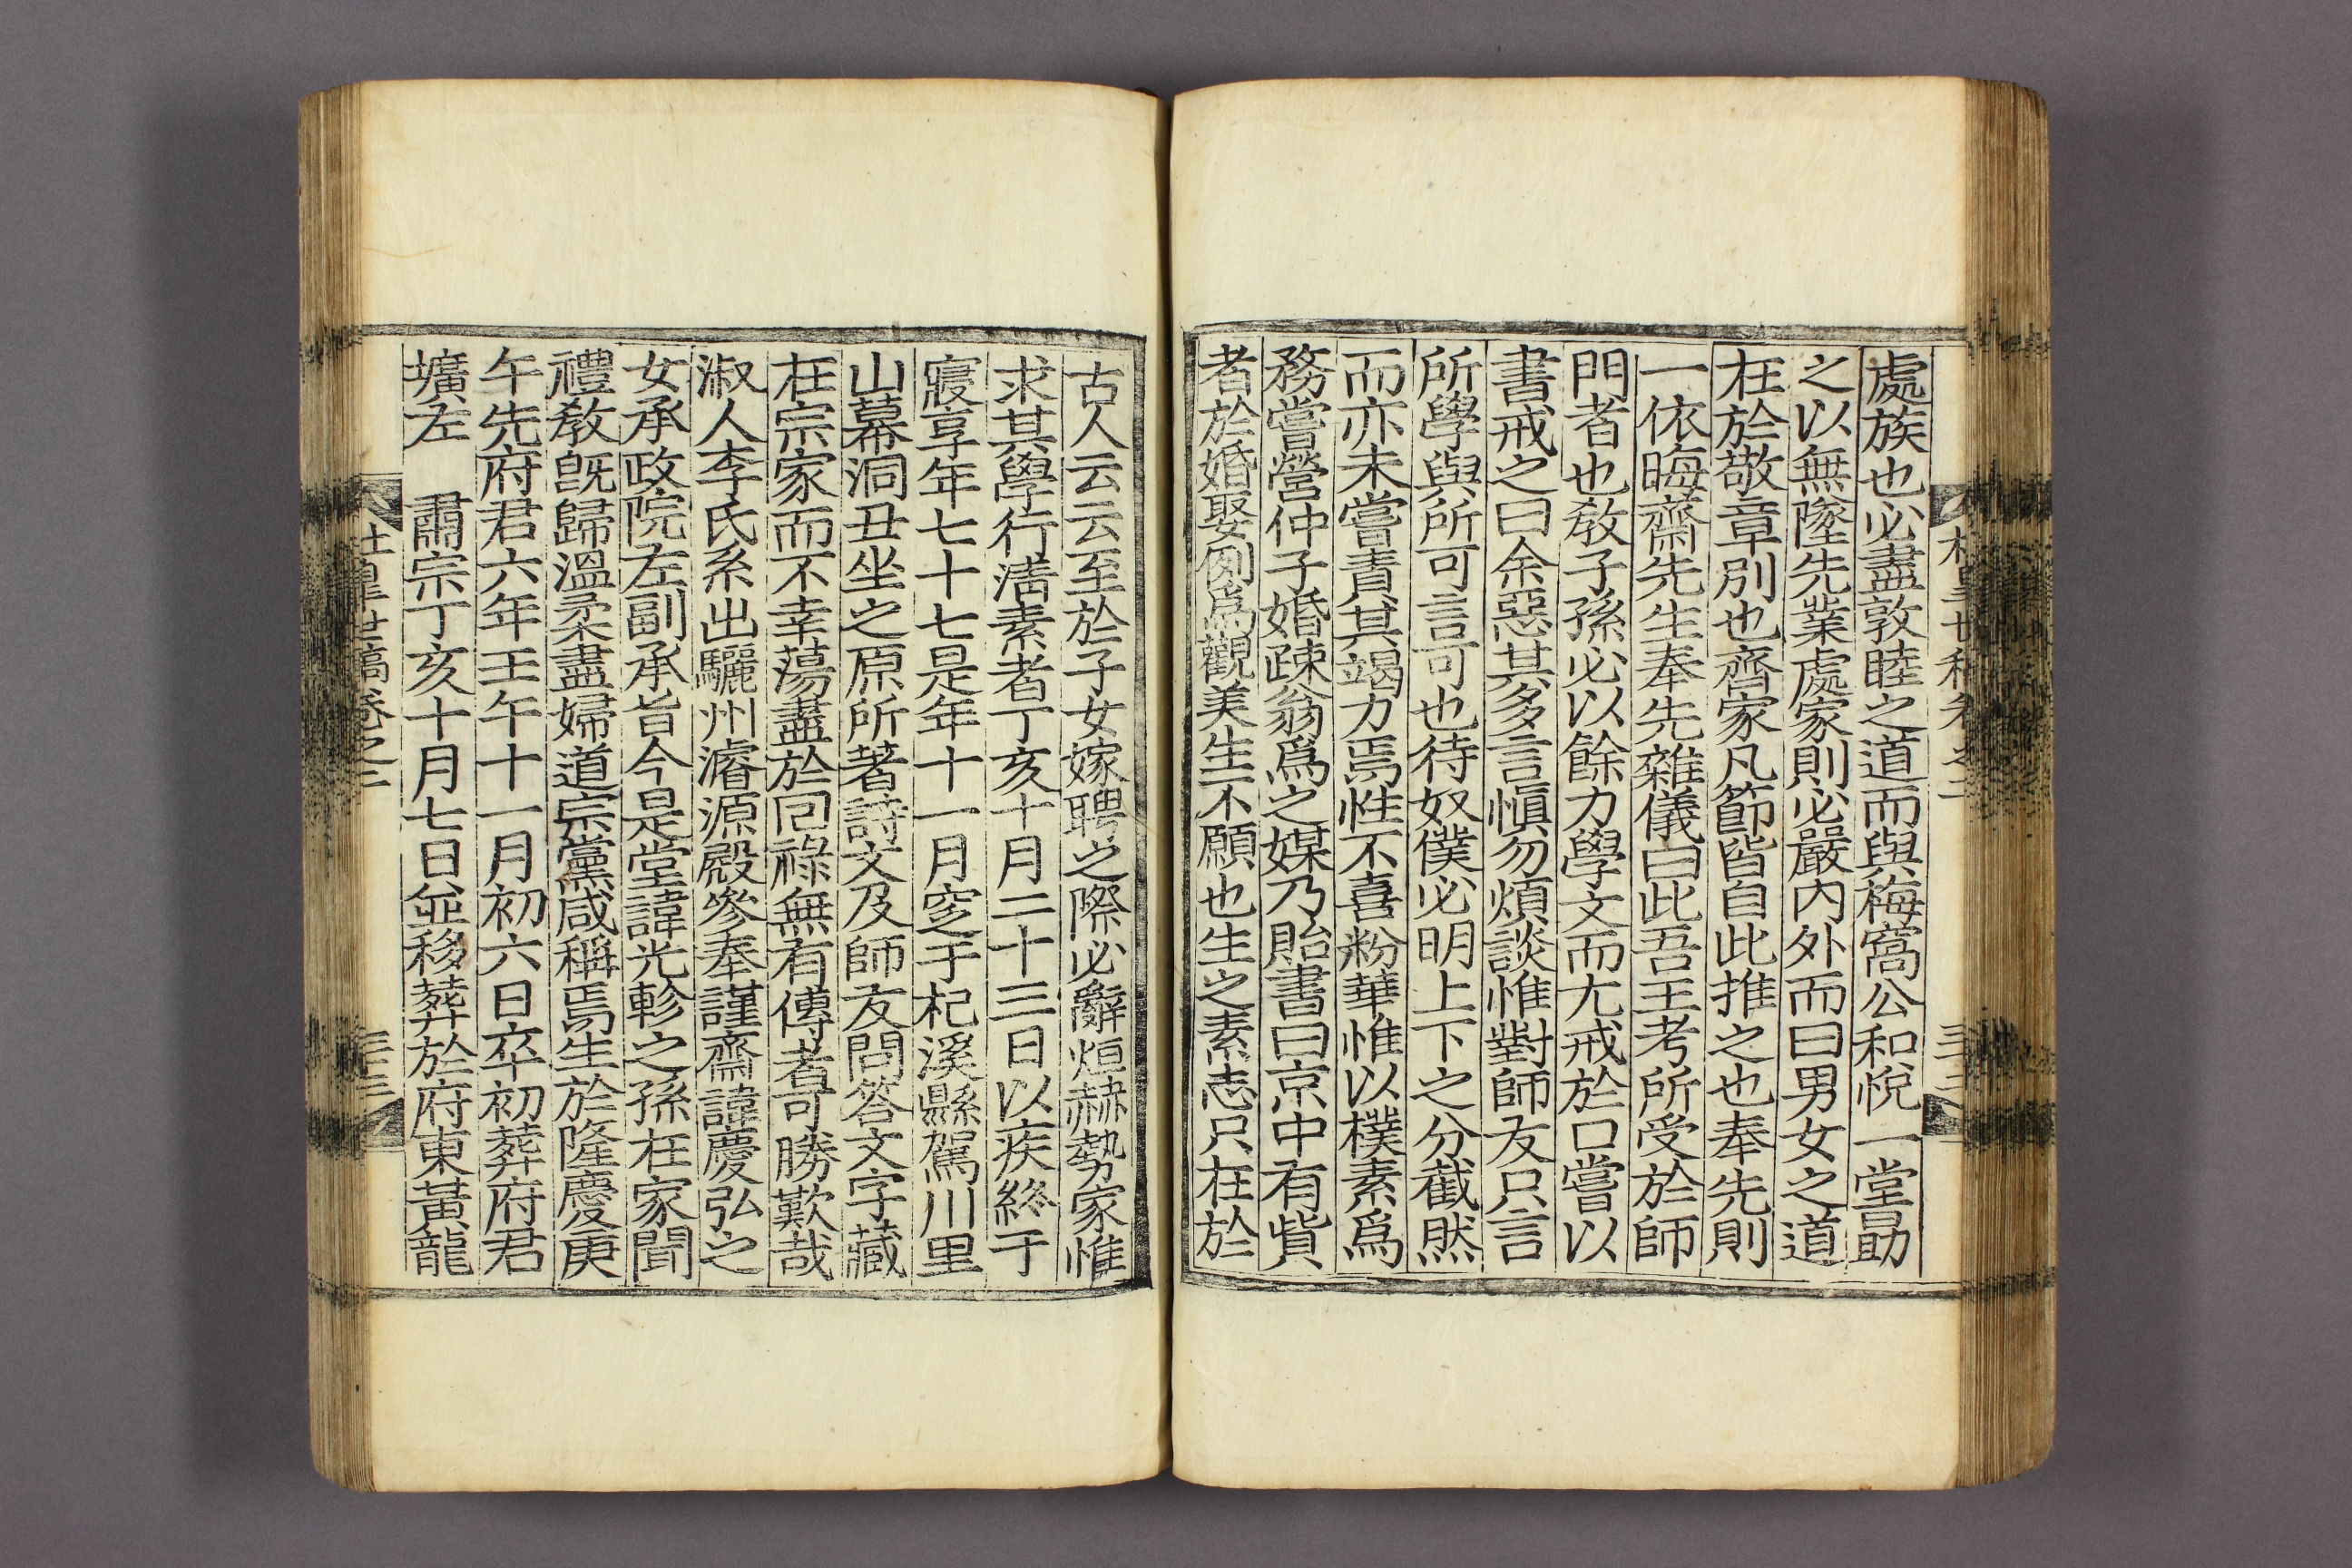 處族也必盡敦睦之道而與梅窩公和悅一堂勗
之以無墜先業處家則必嚴內外而曰男女之道
在於敬章別也齊家凡節皆自此推之也奉先則
一依晦齋先生奉先雜儀曰此吾王考所受於師
門者也敎子孫必以餘力學文而尤戒於口嘗以
書戒之曰余惡其多言愼勿煩談惟對師友只言
所學與所可言可也待奴僕必明上下之分截然
而亦未嘗責其竭力焉性不喜粉華惟以樸素爲
務嘗營仲子婚踈翁爲之媒乃貽書曰京中有貲
者於婚娶例爲觀美生不願也生之素志只在於
古人云云至於子女嫁聘之際必辭烜赫勢家惟
求其學行淸素者丁亥十月二十三日以疾終于
寢享年七十七是年十一月窆于杞溪縣駕川里
山幕洞丑坐之原所著詩文及師友問答文字藏
在宗家而不幸蕩盡於回祿無有傳者可勝歎哉
淑人李氏系出驪州濬源殿參奉謹齋諱慶弘之
女承政院左副承旨今是堂諱光軫之孫在家聞
禮敎旣歸溫柔盡婦道宗黨咸稱焉生於隆慶庚
午先府君六年壬午十一月初六日卒初葬府君
壙左 肅宗丁亥十月七日並移葬於府東黃龍
世稿卷之二
三十三